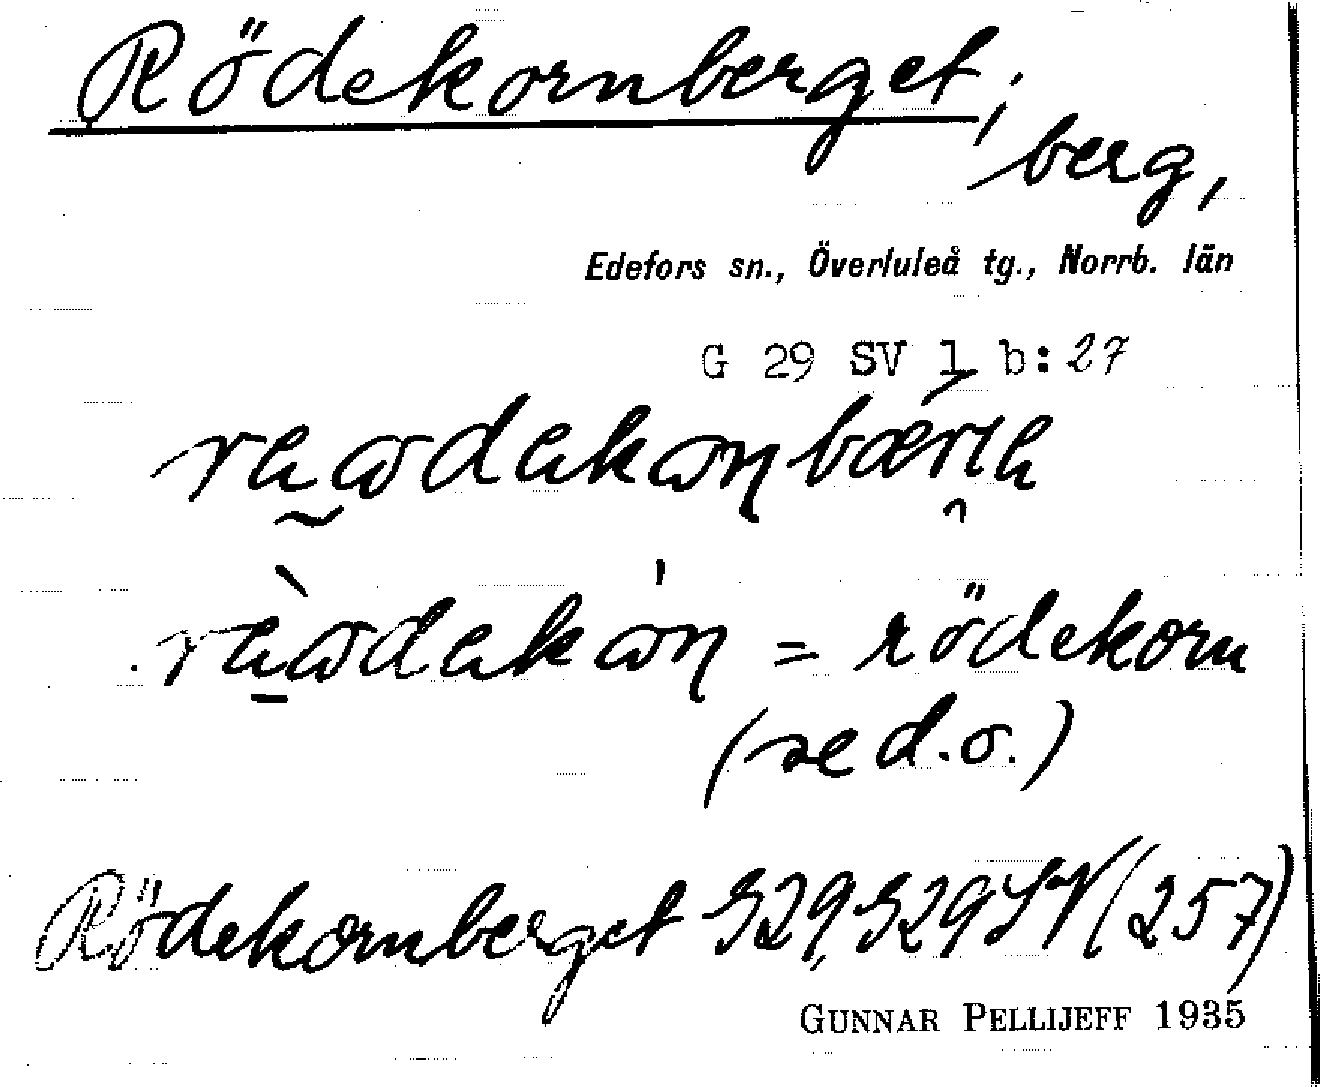 Rödekornberget,
berg,
Edefors sn., Överluleå tg., Norrb. län
G 29 SV 1 b:27
= rödekorn
(se d.o.)
Rödekornberget G29, G29SV (257)
GUNNAR PELLIJEFF 1935